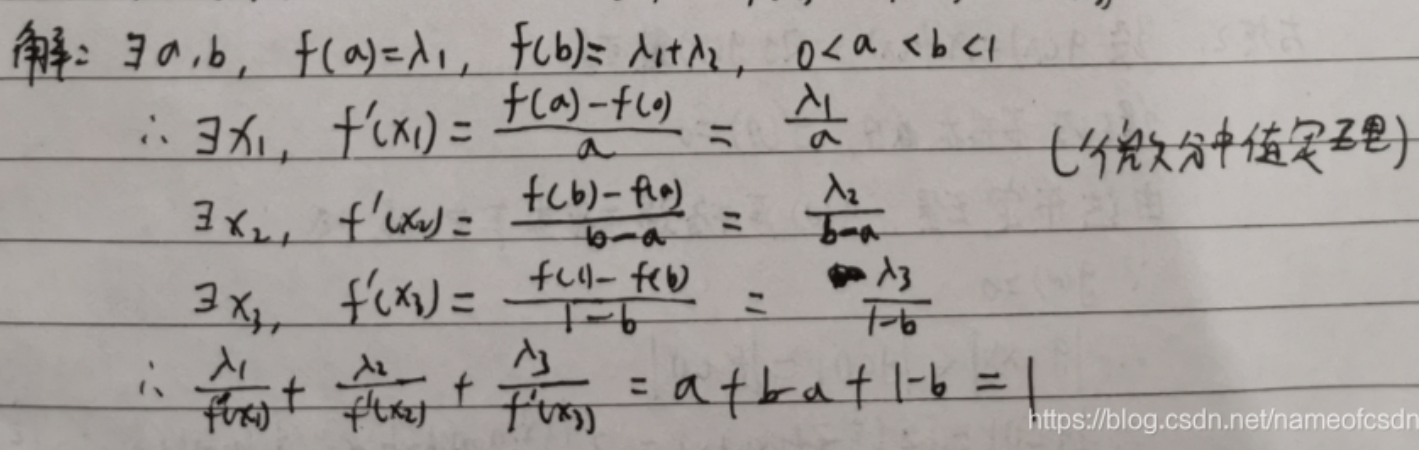 解: ∃a,b, f(a)=λ₁, f(b)=λ₁+λ₂, 0<a<b<1
∴ ∃x₁, f'(x₁) = (f(a)-f(0))/a = λ₁/a (微分中值定理)
∃x₂, f'(x₂) = (f(b)-f(a))/(b-a) = λ₂/(b-a)
∃x₃, f'(x₃) = (f(1)-f(b))/(1-b) = λ₃/(1-b)
∴ λ₁/f'(x₁) + λ₂/f'(x₂) + λ₃/f'(x₃) = a+b-a+1-b = 1
https://blog.csdn.net/nameofcsdn